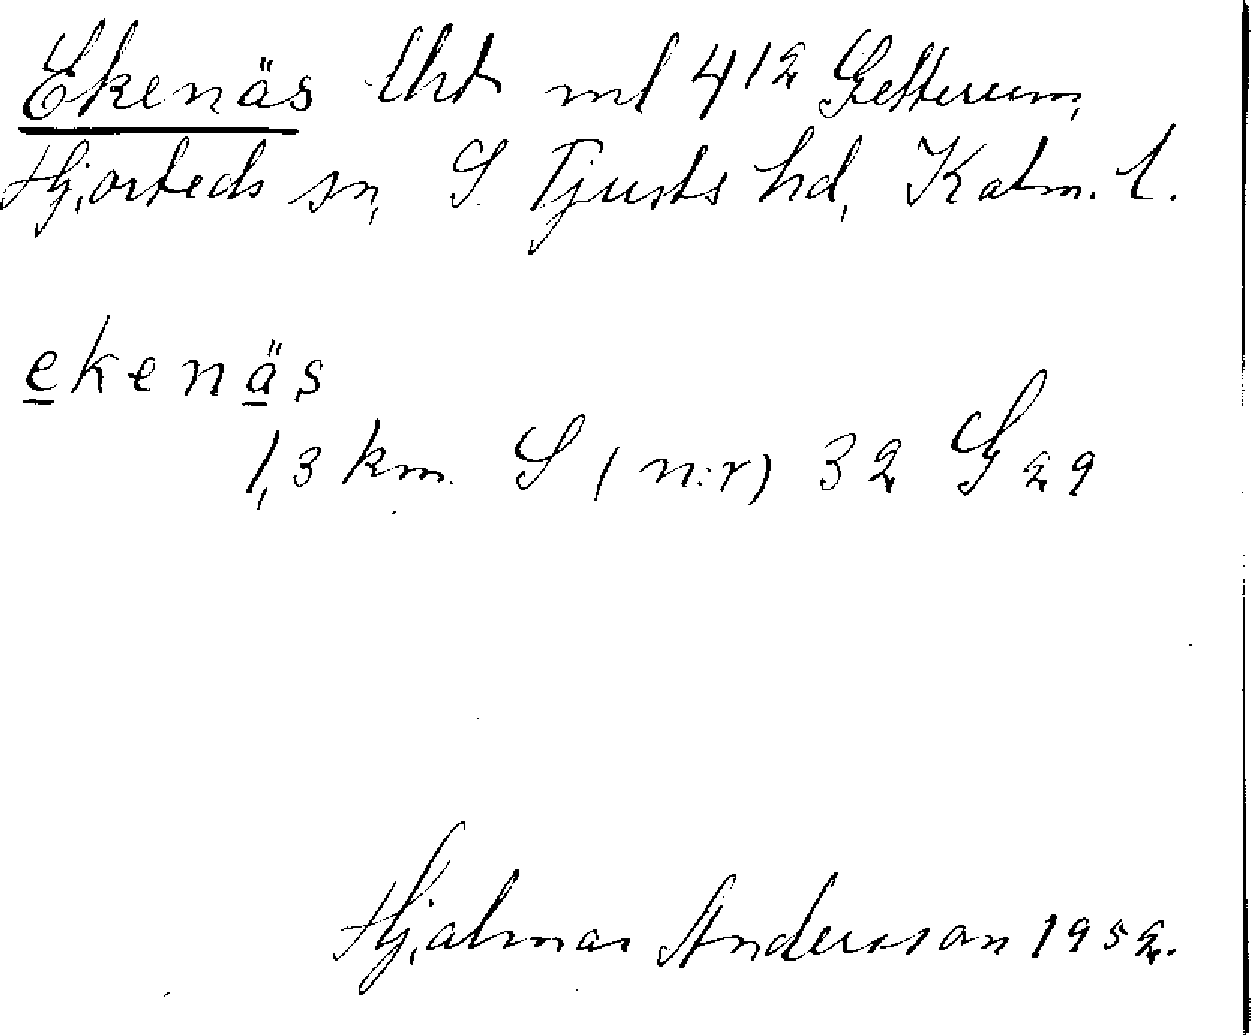 Ekenäs lht ml 4¹² Getterum,
Hjorteds sn, S. Tjusts hd, Kalm. l.
ekenäs
1,3 km. S (n:r) 32 G 29
Hjalmar Andersson 1952.